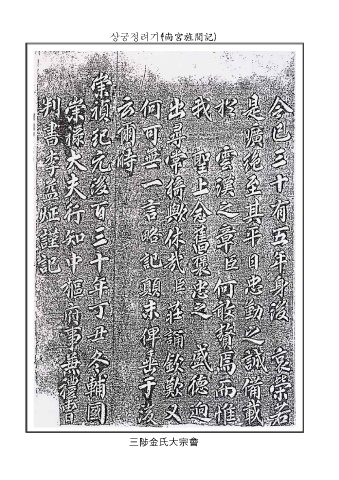 상궁정려기(尙宮旌閭記)
今已三十有五年身後 哀榮若
是曠絶至其平日忠勤之誠備載
於 雲漢之章臣何敢贅焉而惟
我 聖上念舊褒忠之 盛德迥
出尋常猗歟休哉臣莊誦欽歎又
何可無一言略記顚末俾垂于後
云爾時
崇禎紀元後百三十年丁丑冬輔國
崇祿大夫行知中樞府事兼禮曹
判書李益炡謹記
三陟金氏大宗會